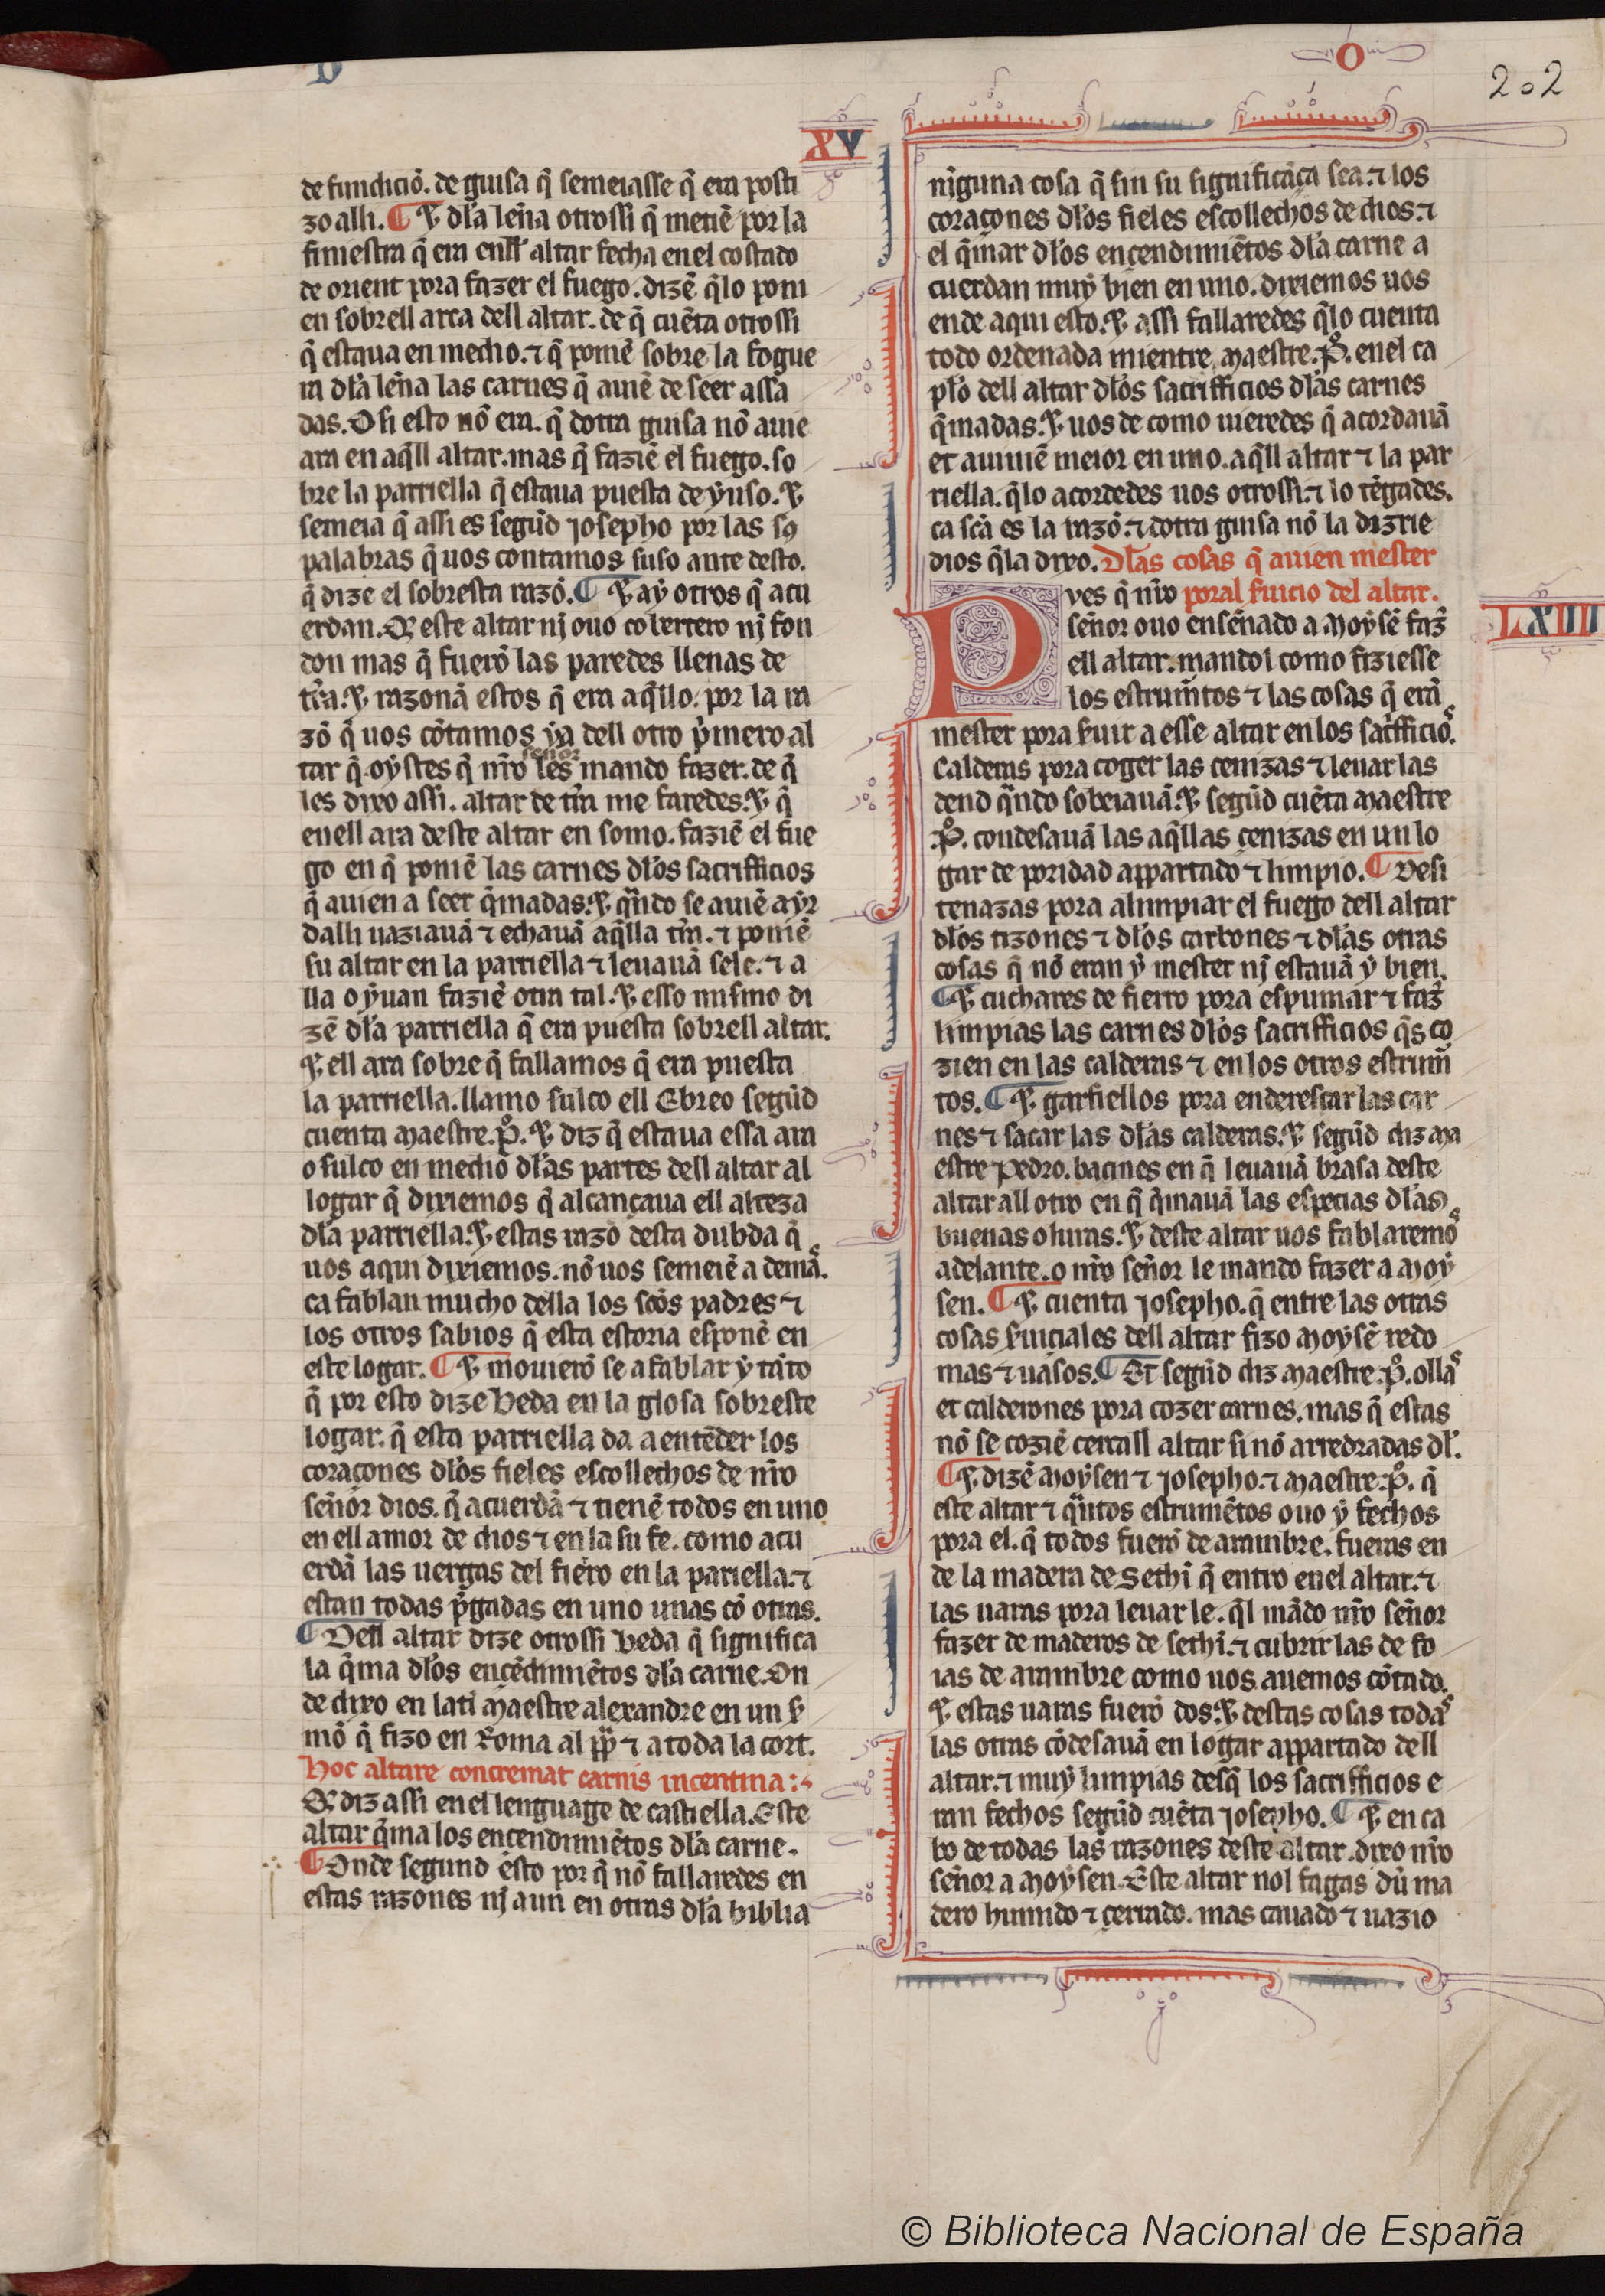 O
202
XV
de fundiciõ. de guisa q̃ semeiasse q̃ era posti
zo alli. ¶ ⁊ dła leña otrossi q̃ metiẽ por la
finiestra q̃ era enlł altar fecha en el costado
de orient pora fazer el fuego. dizẽ q̃lo poni
en sobrell area dell altar. de q̃ cuẽta otrossi
q̃ estaua en medio. ⁊ q̃ poniẽ sobre la fogue
ra dła leña las carnes q̃ auiẽ de seer assa
das. O si esto nõ era. q̃ dotra guisa nõ auie
ara en aq̃ll altar. mas q̃ faziẽ el fuego. so
bre la parriella q̃ estaua puesta de yuso. ⁊
semeia q̃ assi es segũd Josepho por las sꝯ
palabras q̃ uos contamos suso ante desto.
q̃ dize el sobresta razõ. ¶ ⁊ ay otros q̃ acu
erdan. Q̃ este altar nj ouo cobertero nj fon
don mas q̃ fuerõ las paredes llenas de
tr̃a. ⁊ razonã estos q̃ era aq̃llo. por la ra
zõ q̃ uos cõtamos ya dell otro p̃mero al
tar q̃ oystes q̃ nr̃o señor les mando fazer. de q̃
les dixo assi. altar de tr̃ra me faredes. ⁊ q̃
enell ara deste altar en somo. faziẽ el fue
go en q̃ poniẽ las carnes dłos sacrifficios
q̃ auien a seer q̃madas. ⁊ qñdo se auiẽ a yr
dalli uaziauã ⁊ echauã aq̃lla tr̃ra. ⁊ poniẽ
su altar en la parriella ⁊ leuauã sele. ⁊ a
lla o yuan faziẽ otra tal. ⁊ esso mismo di
zẽ dła parriella q̃ era puesta sobrell altar.
⁊ ell ara sobre q̃ fallamos q̃ era puesta
la parriella. llamo sulco ell Ebreo segũd
cuenta maestre. P̊. ⁊ diz q̃ estaua essa ara
o sulco en medio dłas partes dell altar al
logar q̃ dixiemos q̃ alcançaua ell alteza
dła parriella. ⁊ estas razõ desta dubda q̃
uos aqui dixiemos. nõ uos semeiẽ a demãs.
ca fablan mucho della los sc̃os padres ⁊
los otros sabios q̃ esta estoria esponẽ en
este logar. ¶ ⁊ mouierõ se a fablar y tãto
q̃ por esto dize Beda en la glosa sobreste
logar. q̃ esta parriella da a entẽder los
coraçones dłos fieles escollechos de nr̃o
señor dios. q̃ acuerdã ⁊ tienẽ todos en uno
en ell amor de dios ⁊ en la su fe. como acu
erdã las uergas del fierro en la pariella. ⁊
estan todas p̃gadas en uno unas cõ otras.
¶ Dell altar dize otrossi Beda q̃ significa
la q̃ma dłos encẽdimiẽtos dła carne. On
de dixo en latĩ maestre alexandre en un ẜ
mõ q̃ fizo en Roma al pp̃ ⁊ a toda la cort.
Hoc altare concremat carnis incentiua:
Q̃ diz assi en el lenguage de castiella. Este
altar q̃ma los encendimiẽtos dła carne.
¶ Onde segund esto por q̃ nõ fallaredes en
estas razones nj aun en otras dła biblia
ninguna cosa q̃ sin su significãça sea. ⁊ los
coraçones dłos fieles escollechos de dios. ⁊
el q̃mar dłos encendimiẽtos dła carne a
cuerdan muy bien en uno. dixiemos uos
ende aqui esto. ⁊ assi fallaredes q̃lo cuenta
todo ordenada mientre maestre. P̊. en el ca
pło dell altar dłos sacrifficios dłas carnes
q̃madas. ⁊ uos de como uieredes q̃ acordauã
et auiniẽ meior en uno. aq̃ll altar ⁊ la par
riella. q̃lo acordedes uos otrossi. ⁊ lo tẽgades.
ca sc̃a es la razõ. ⁊ dotra guisa nõ la dizrie
dios q̃la dixo. Dłas cosas q̃ auien mester
Pves q̃ nr̃o poral ẜuicio del altar.
LXIIII
señor ouo enseñado a moysẽ faz̃
ell altar. mandol como fiziesse
los estrum̃tos ⁊ las cosas q̃ erã
mester pora ẜuir a esse altar en los sac̃fficios.
Calderas pora coger las cenizas ⁊ leuar las
dend qñdo sobeiauã. ⁊ segũd cuẽta maestre
P̊. condesauã las aq̃llas cenizas en un lo
gar de poridad appartado ⁊ limpio. ¶ Desi
tenazas pora alimpiar el fuego dell altar
dłos tizones ⁊ dłos carbones ⁊ dłas otras
cosas q̃ nõ eran y mester nj estauã y bien.
¶ ⁊ cuchares de fierro pora espumar ⁊ faz̃
limpias las carnes dłos sacrifficios q̃s co
zien en las calderas ⁊ en los otros estrum̃
tos. ¶ ⁊ garfiellos pora enderesçar las car
nes ⁊ sacar las dłas calderas. ⁊ segũd diz ma
estre Pedro. bacines en q̃ leuauã brasa deste
altar all otro en q̃ q̃mauã las especias dłas
buenas oluras. ⁊ deste altar uos fablaremos
adelante. o nr̃o señor le mando fazer a moy
sen. ¶ ⁊ cuenta Josepho. q̃ entre las otras
cosas ẜuiciales dell altar fizo moysẽ redo
mas ⁊ uasos. ¶ Et segũd diz maestre. P̊. ollas
et calderones pora cozer carnes. mas q̃ estas
nõ se coziẽ cercall altar si nõ arredradas dł.
¶ ⁊ dizẽ moysen ⁊ Josepho. ⁊ maestre. P̊. q̃
este altar ⁊ qñtos estrumẽtos ouo y fechos
pora el. q̃ todos fuerõ de arambre. fueras en
de la madera de Sethĩ q̃ entro en el altar. ⁊
las uaras pora leuar le. q̃l mãdo nr̃o señor
fazer de maderos de sethĩ. ⁊ cubrir las de fo
ias de arambre como uos auemos cõtado.
⁊ estas uaras fuerõ dos. ⁊ destas cosas todas
las otras cõdesauã en logar appartado dell
altar. ⁊ muy limpias desq̃ los sacrifficios e
ran fechos segũd cuẽta Josepho. ¶ ⁊ en ca
bo de todas las razones deste altar. dixo nr̃o
señor a moysen. Este altar nol fagas dũ ma
dero humido ⁊ cerrado. mas cauado ⁊ uazio
© Biblioteca Nacional de España